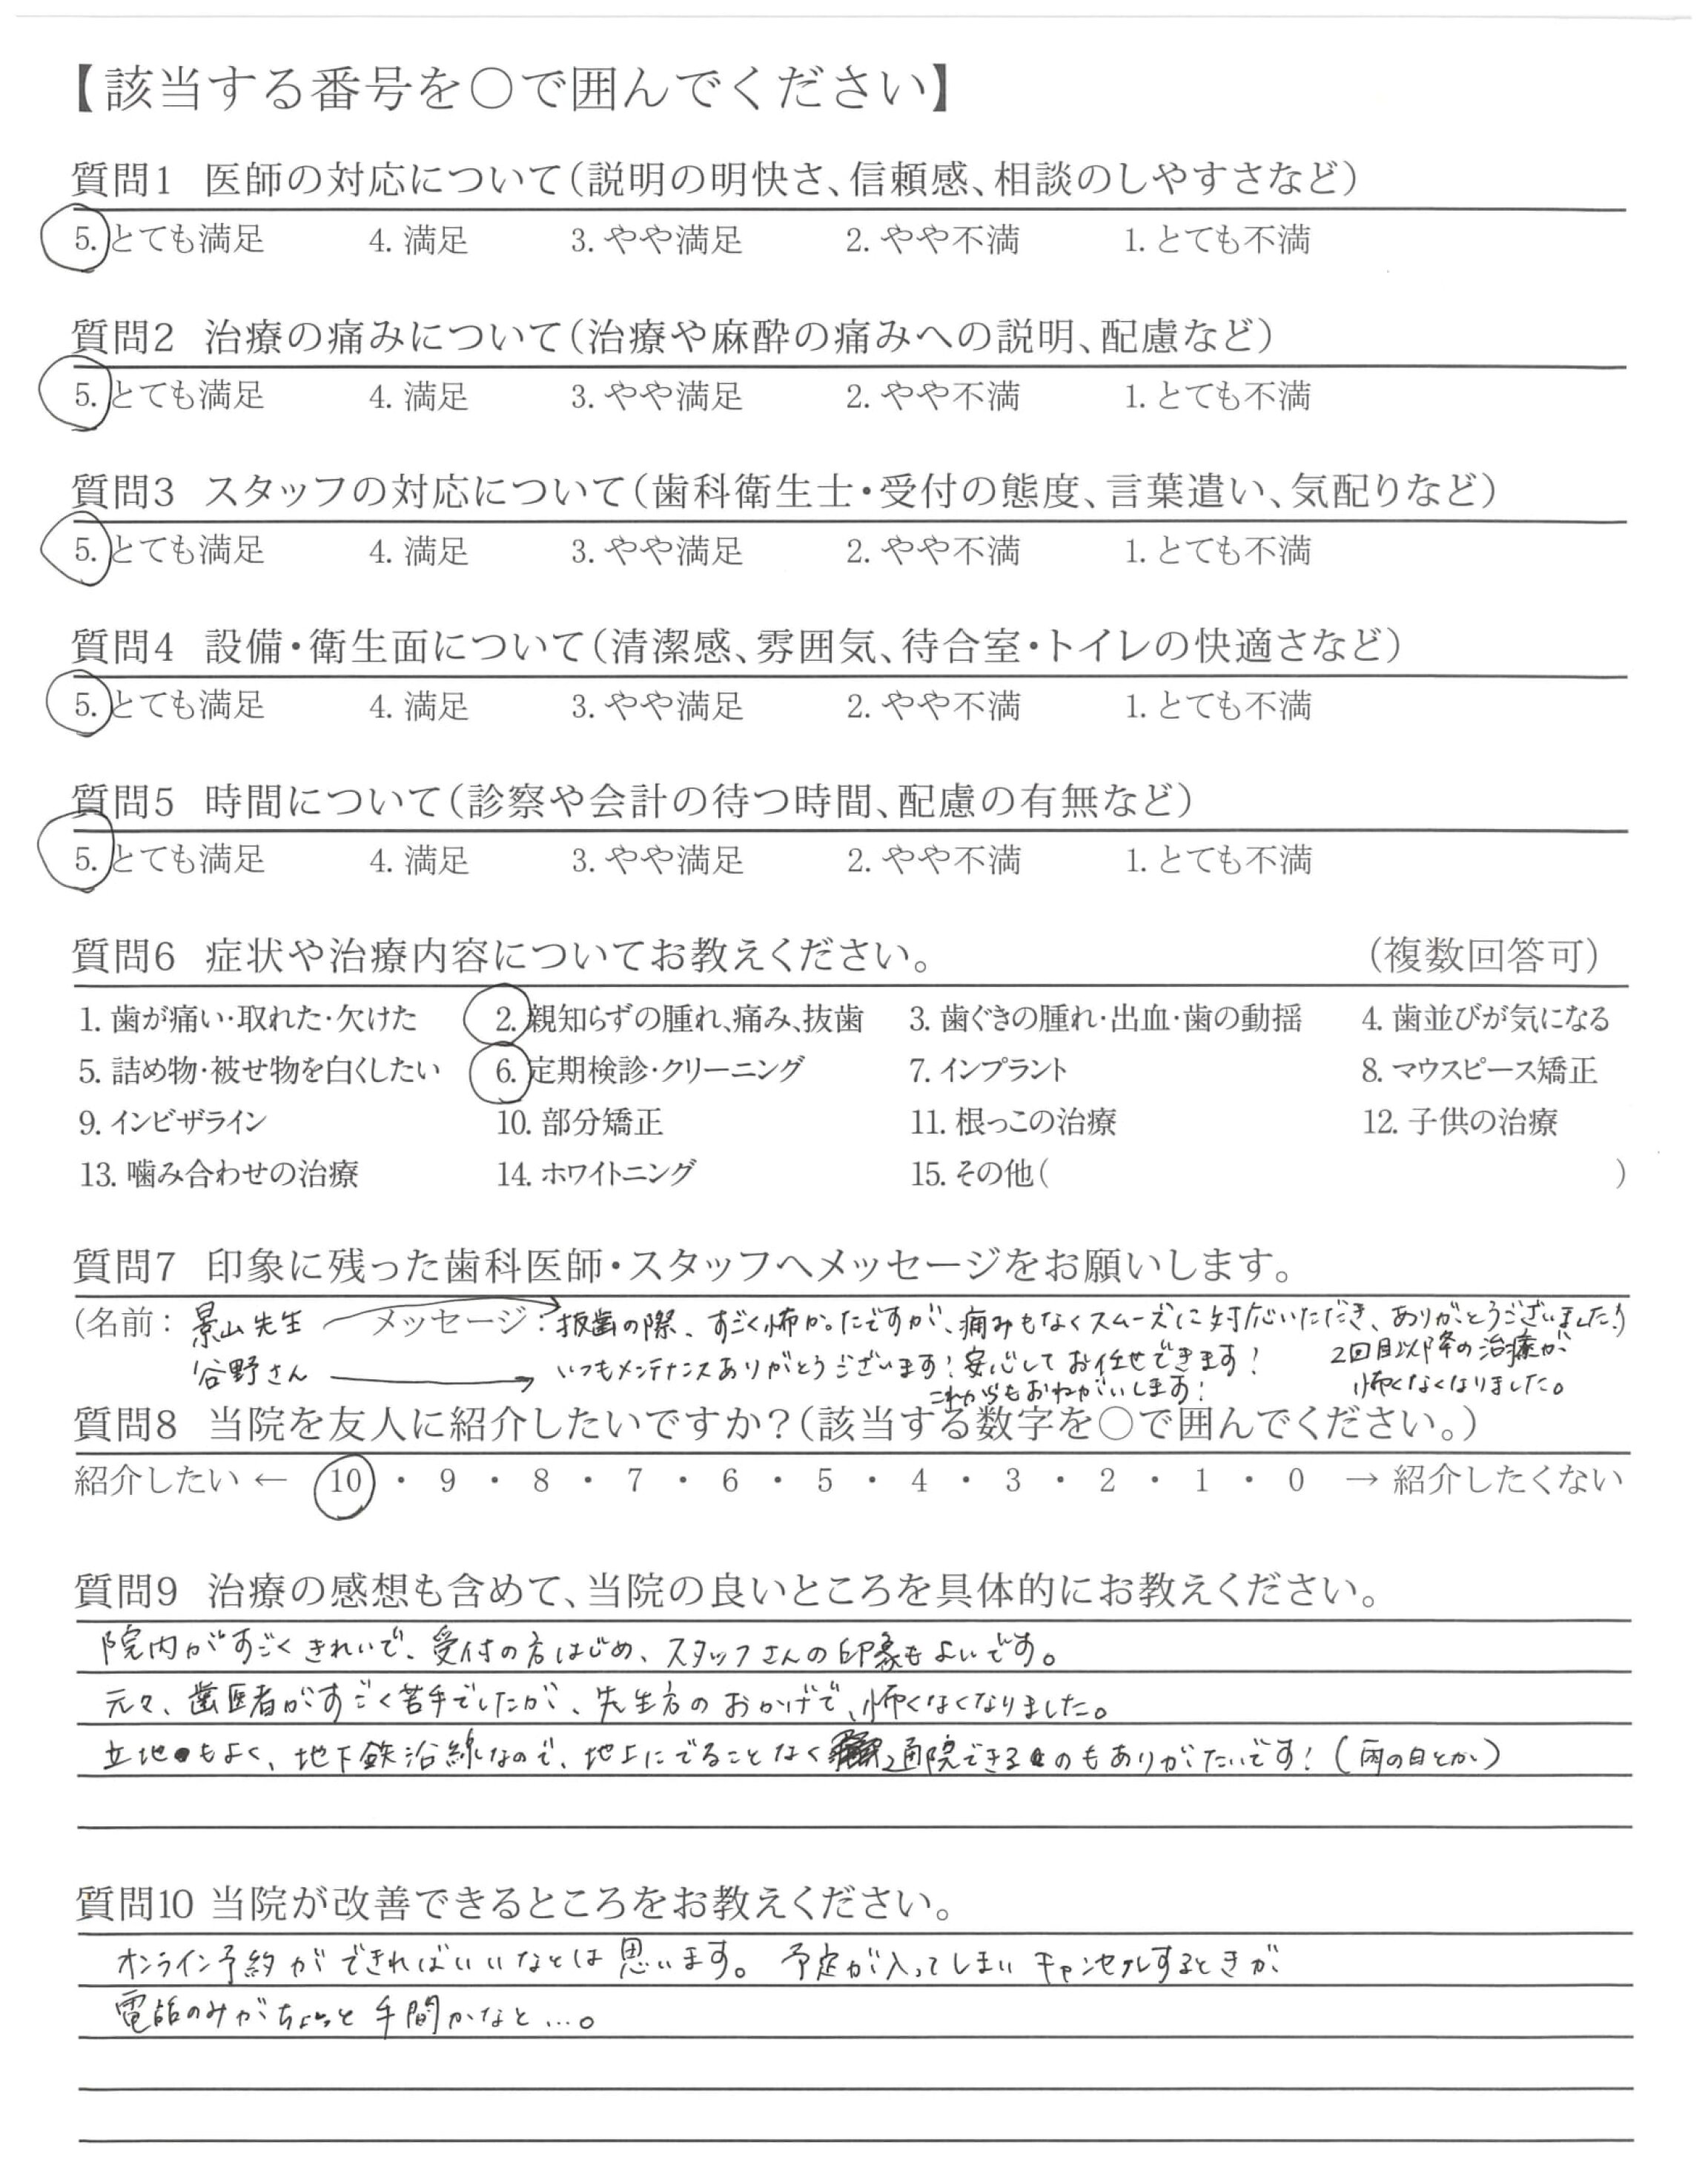 【該当する番号を○で囲んでください】
質問1 医師の対応について(説明の明快さ、信頼感、相談のしやすさなど)
5. とても満足 4. 満足 3. やや満足 2. やや不満 1. とても不満
質問2 治療の痛みについて(治療や麻酔の痛みへの説明、配慮など)
5. とても満足 4. 満足 3. やや満足 2. やや不満 1. とても不満
質問3 スタッフの対応について(歯科衛生士・受付の態度、言葉遣い、気配りなど)
5. とても満足 4. 満足 3. やや満足 2. やや不満 1. とても不満
質問4 設備・衛生面について(清潔感、雰囲気、待合室・トイレの快適さなど)
5. とても満足 4. 満足 3. やや満足 2. やや不満 1. とても不満
質問5 時間について(診察や会計の待つ時間、配慮の有無など)
5. とても満足 4. 満足 3. やや満足 2. やや不満 1. とても不満
質問6 症状や治療内容についてお教えください。 (複数回答可)
1. 歯が痛い・取れた・欠けた 2. 親知らずの腫れ、痛み、抜歯 3. 歯ぐきの腫れ・出血・歯の動揺 4. 歯並びが気になる
5. 詰め物・被せ物を白くしたい 6. 定期検診・クリーニング 7. インプラント 8. マウスピース矯正
9. インビザライン 10. 部分矯正 11. 根っこの治療 12. 子供の治療
13. 噛み合わせの治療 14. ホワイトニング 15. その他( )
質問7 印象に残った歯科医師・スタッフへメッセージをお願いします。
(名前: 景山先生 メッセージ: 抜歯の際、すごく怖かったですが、痛みもなくスムーズに対応いただき、ありがとうございました!)
2回目以降の治療が
怖くなくなりました。
谷野さん いつもメンテナンスありがとうございます!安心してお任せできます!
これからもおねがいします!
質問8 当院を友人に紹介したいですか?(該当する数字を○で囲んでください。)
紹介したい ← 10 ・ 9 ・ 8 ・ 7 ・ 6 ・ 5 ・ 4 ・ 3 ・ 2 ・ 1 ・ 0 → 紹介したくない
質問9 治療の感想も含めて、当院の良いところを具体的にお教えください。
院内がすごくきれいで、受付の方はじめ、スタッフさんの印象もよいです。
元々、歯医者がすごく苦手でしたが、先生方のおかげで、怖くなくなりました。
立地もよく、地下鉄沿線なので、地上にでることなく通院できるのもありがたいです!(雨の日とか)
質問10 当院が改善できるところをお教えください。
オンライン予約ができればいいなとは思います。予定が入ってしまいキャンセルするときが
電話のみがちょっと手間かなと…。